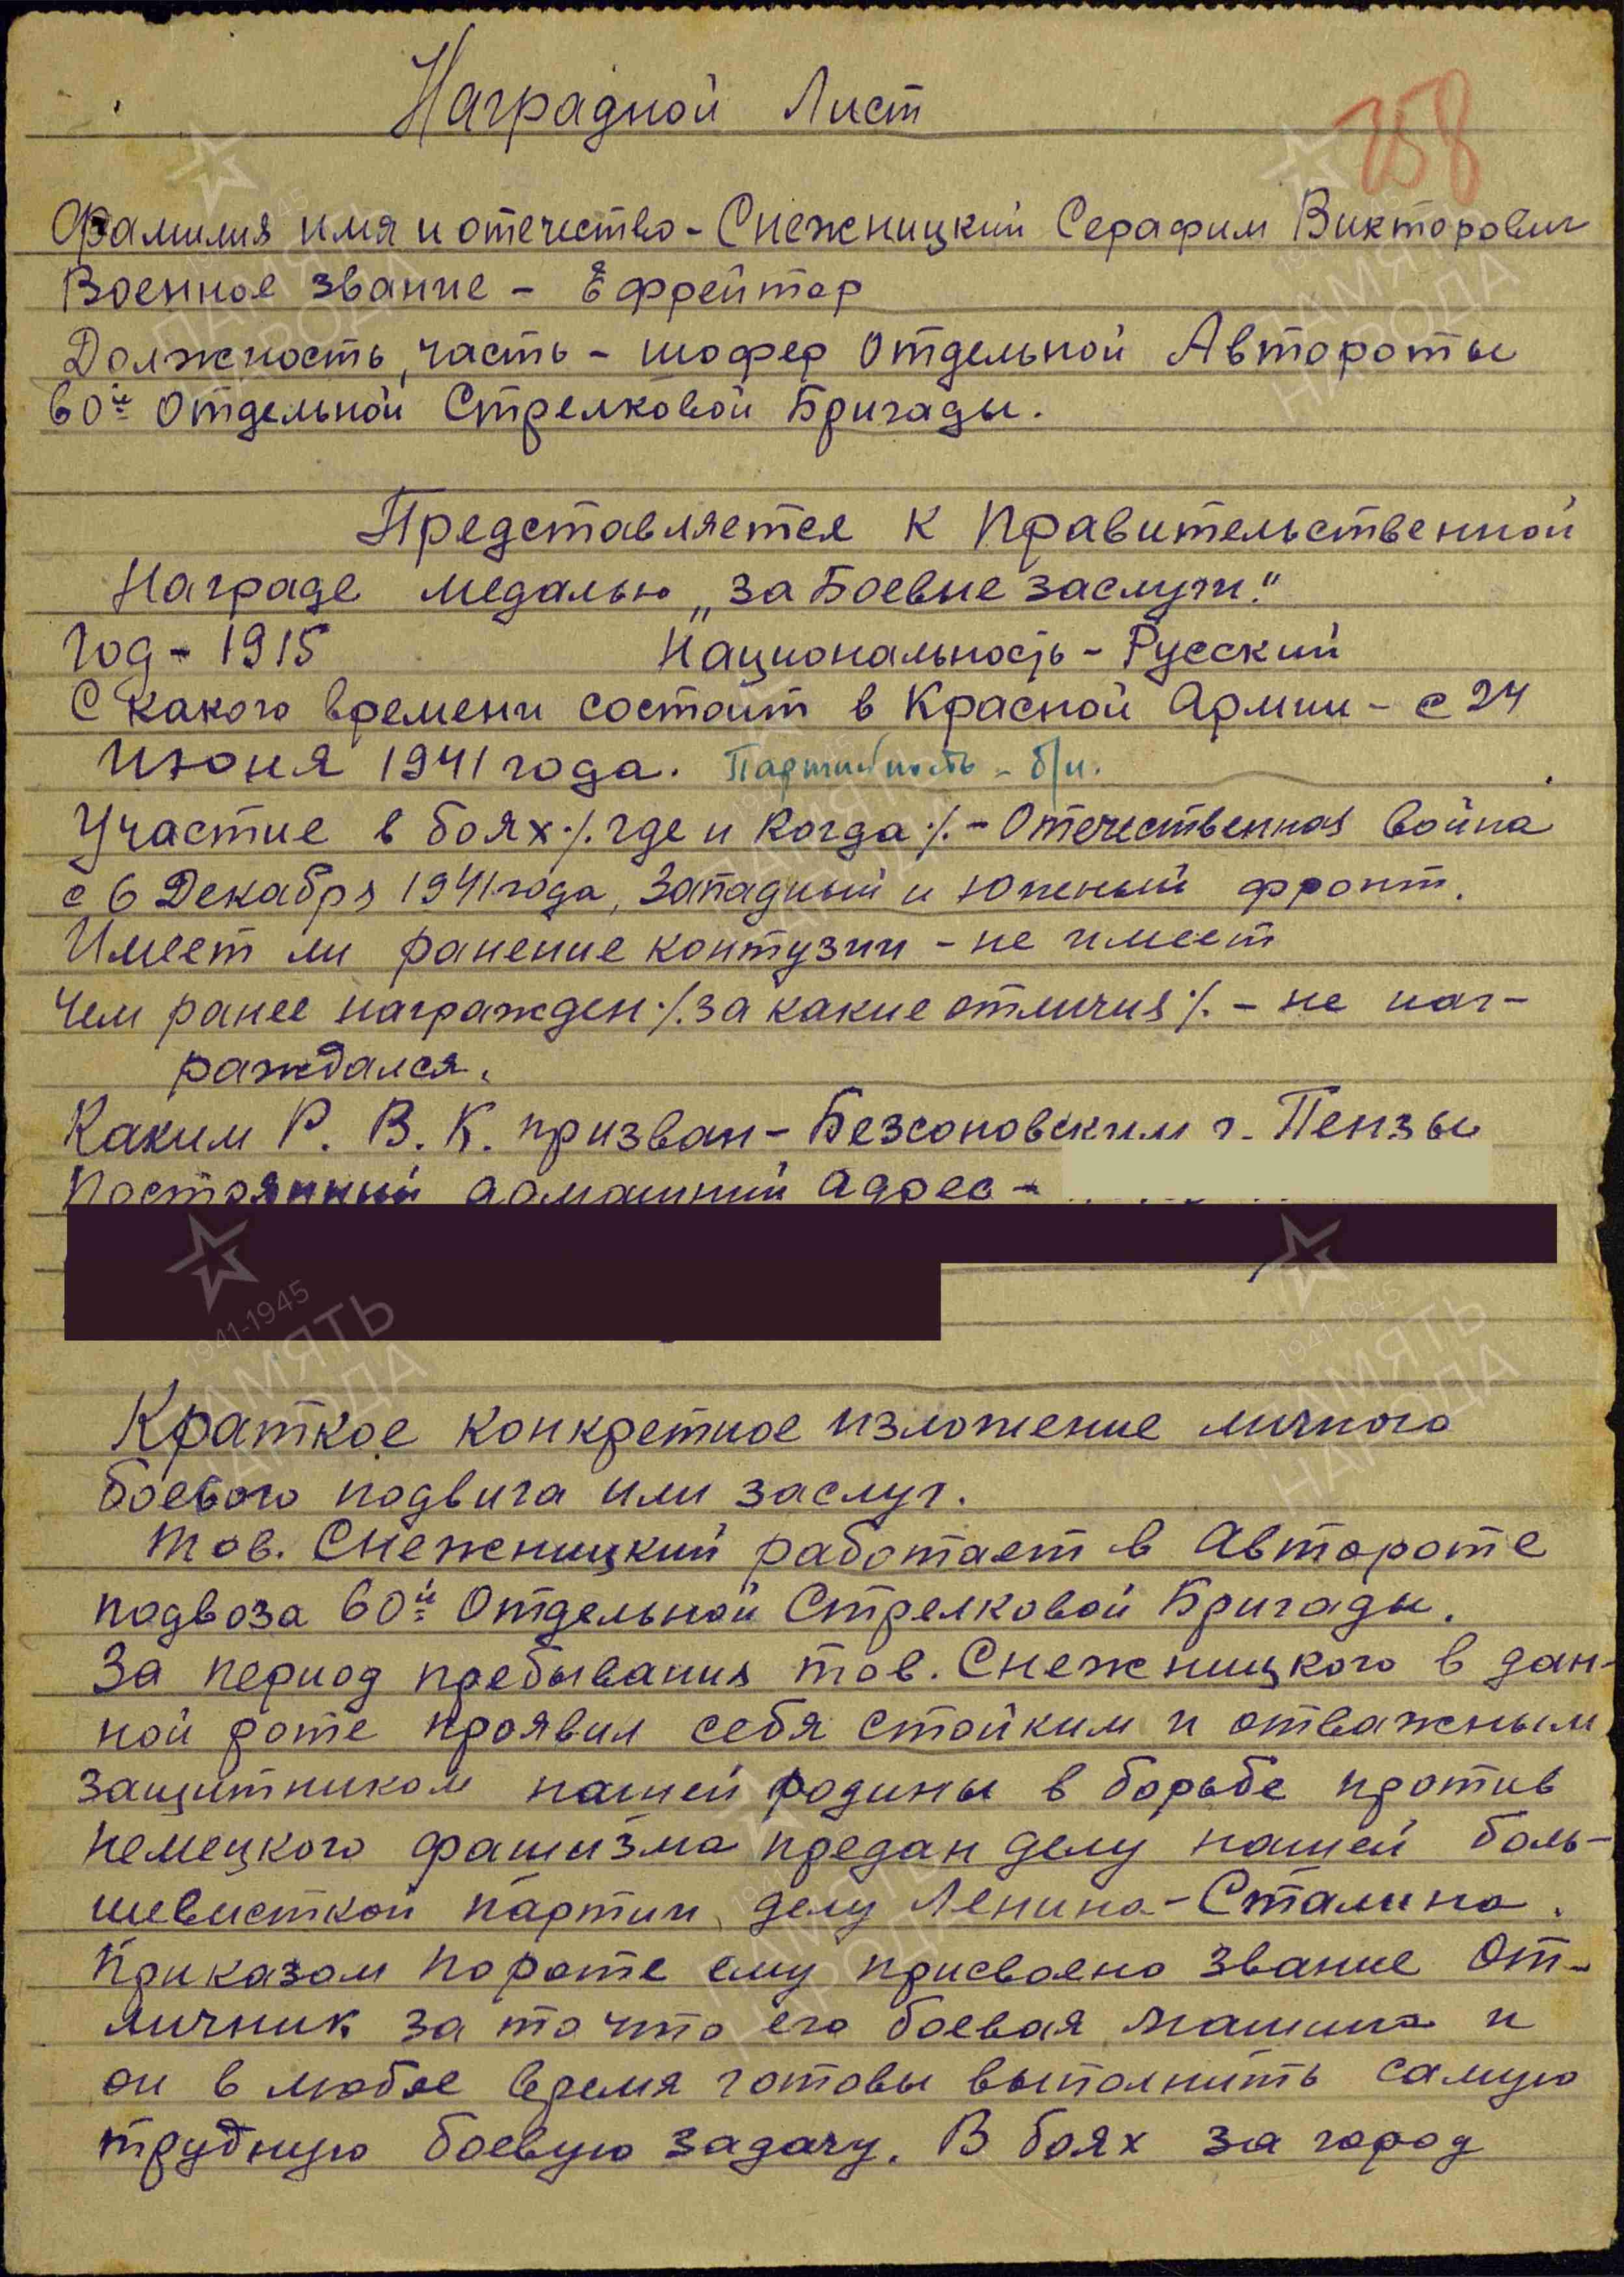 Наградной Лист
258
Фамилия имя и отчество - Снежницкий Серафим Викторович
Военное звание - Ефрейтор
Должность, часть - шофер Отдельной Автороты
60й Отдельной Стрелковой Бригады.
Представляется к Правительственной
Награде медалью „за Боевые заслуги."
Год - 1915 Национальность - Русский
С какого времени состоит в Красной Армии - с 24
Июня 1941 года. Партийность - б/п.
Участие в боях ./. где и когда ./. - Отечественная война
с 6 Декабря 1941 года, Западный и Южный фронт.
Имеет ли ранение контузии - не имеет
Чем ранее награжден ./. за какие отличия ./. - не наг-
раждался.
Каким Р. В. К. призван - Безсоновским г. Пензы
Постоянный домашний адрес -
Краткое конкретное изложение личного
боевого подвига или заслуг.
Тов. Снежницкий работает в Автороте
подвоза 60й Отдельной Стрелковой Бригады.
За период пребывания тов. Снежницкого в дан-
ной роте проявил себя стойким и отважным
защитником нашей родины в борьбе против
немецкого фашизма предан делу нашей боль-
шевисткой партии, делу Ленина-Сталина.
Приказом по роте ему присвоено звание От-
личник за то что его боевая машина и
он в любое время готовы выполнить самую
трудную боевую задачу. В боях за город
1941-1945
ПАМЯТЬ
НАРОДА